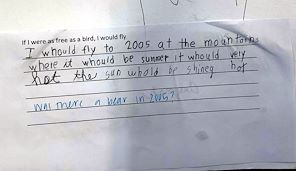 If I were as free as a bird, I would fly
I whould fly to 2005 at the mountains
where it whould be summer it whould very
hot the sun whold be shineg hot
was there a bear in 2005?